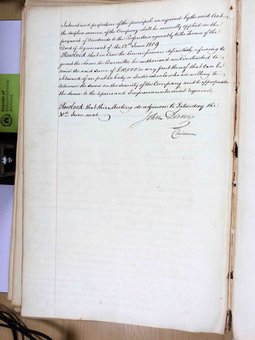 Interest and proportion of the principal as required by the said Act
the surplus income of the Company shall be annually applied in the
payment of Dividends to the Proprietors agreeably to the Terms of the
Deed of Agreement of the 13th June 1809
Resolved that in Case the Commissioners
grant the Loan the Committee be authorised and instructed to
raise the said Sum of or any part thereof that can be
obtained of any public body or Individuals who are willing to
advance the same on the security of the Company and to appropriate
the same to the Repairs and Improvements as required
Resolved that this Meeting do adjourn to Saturday the
June next
John
Chairman